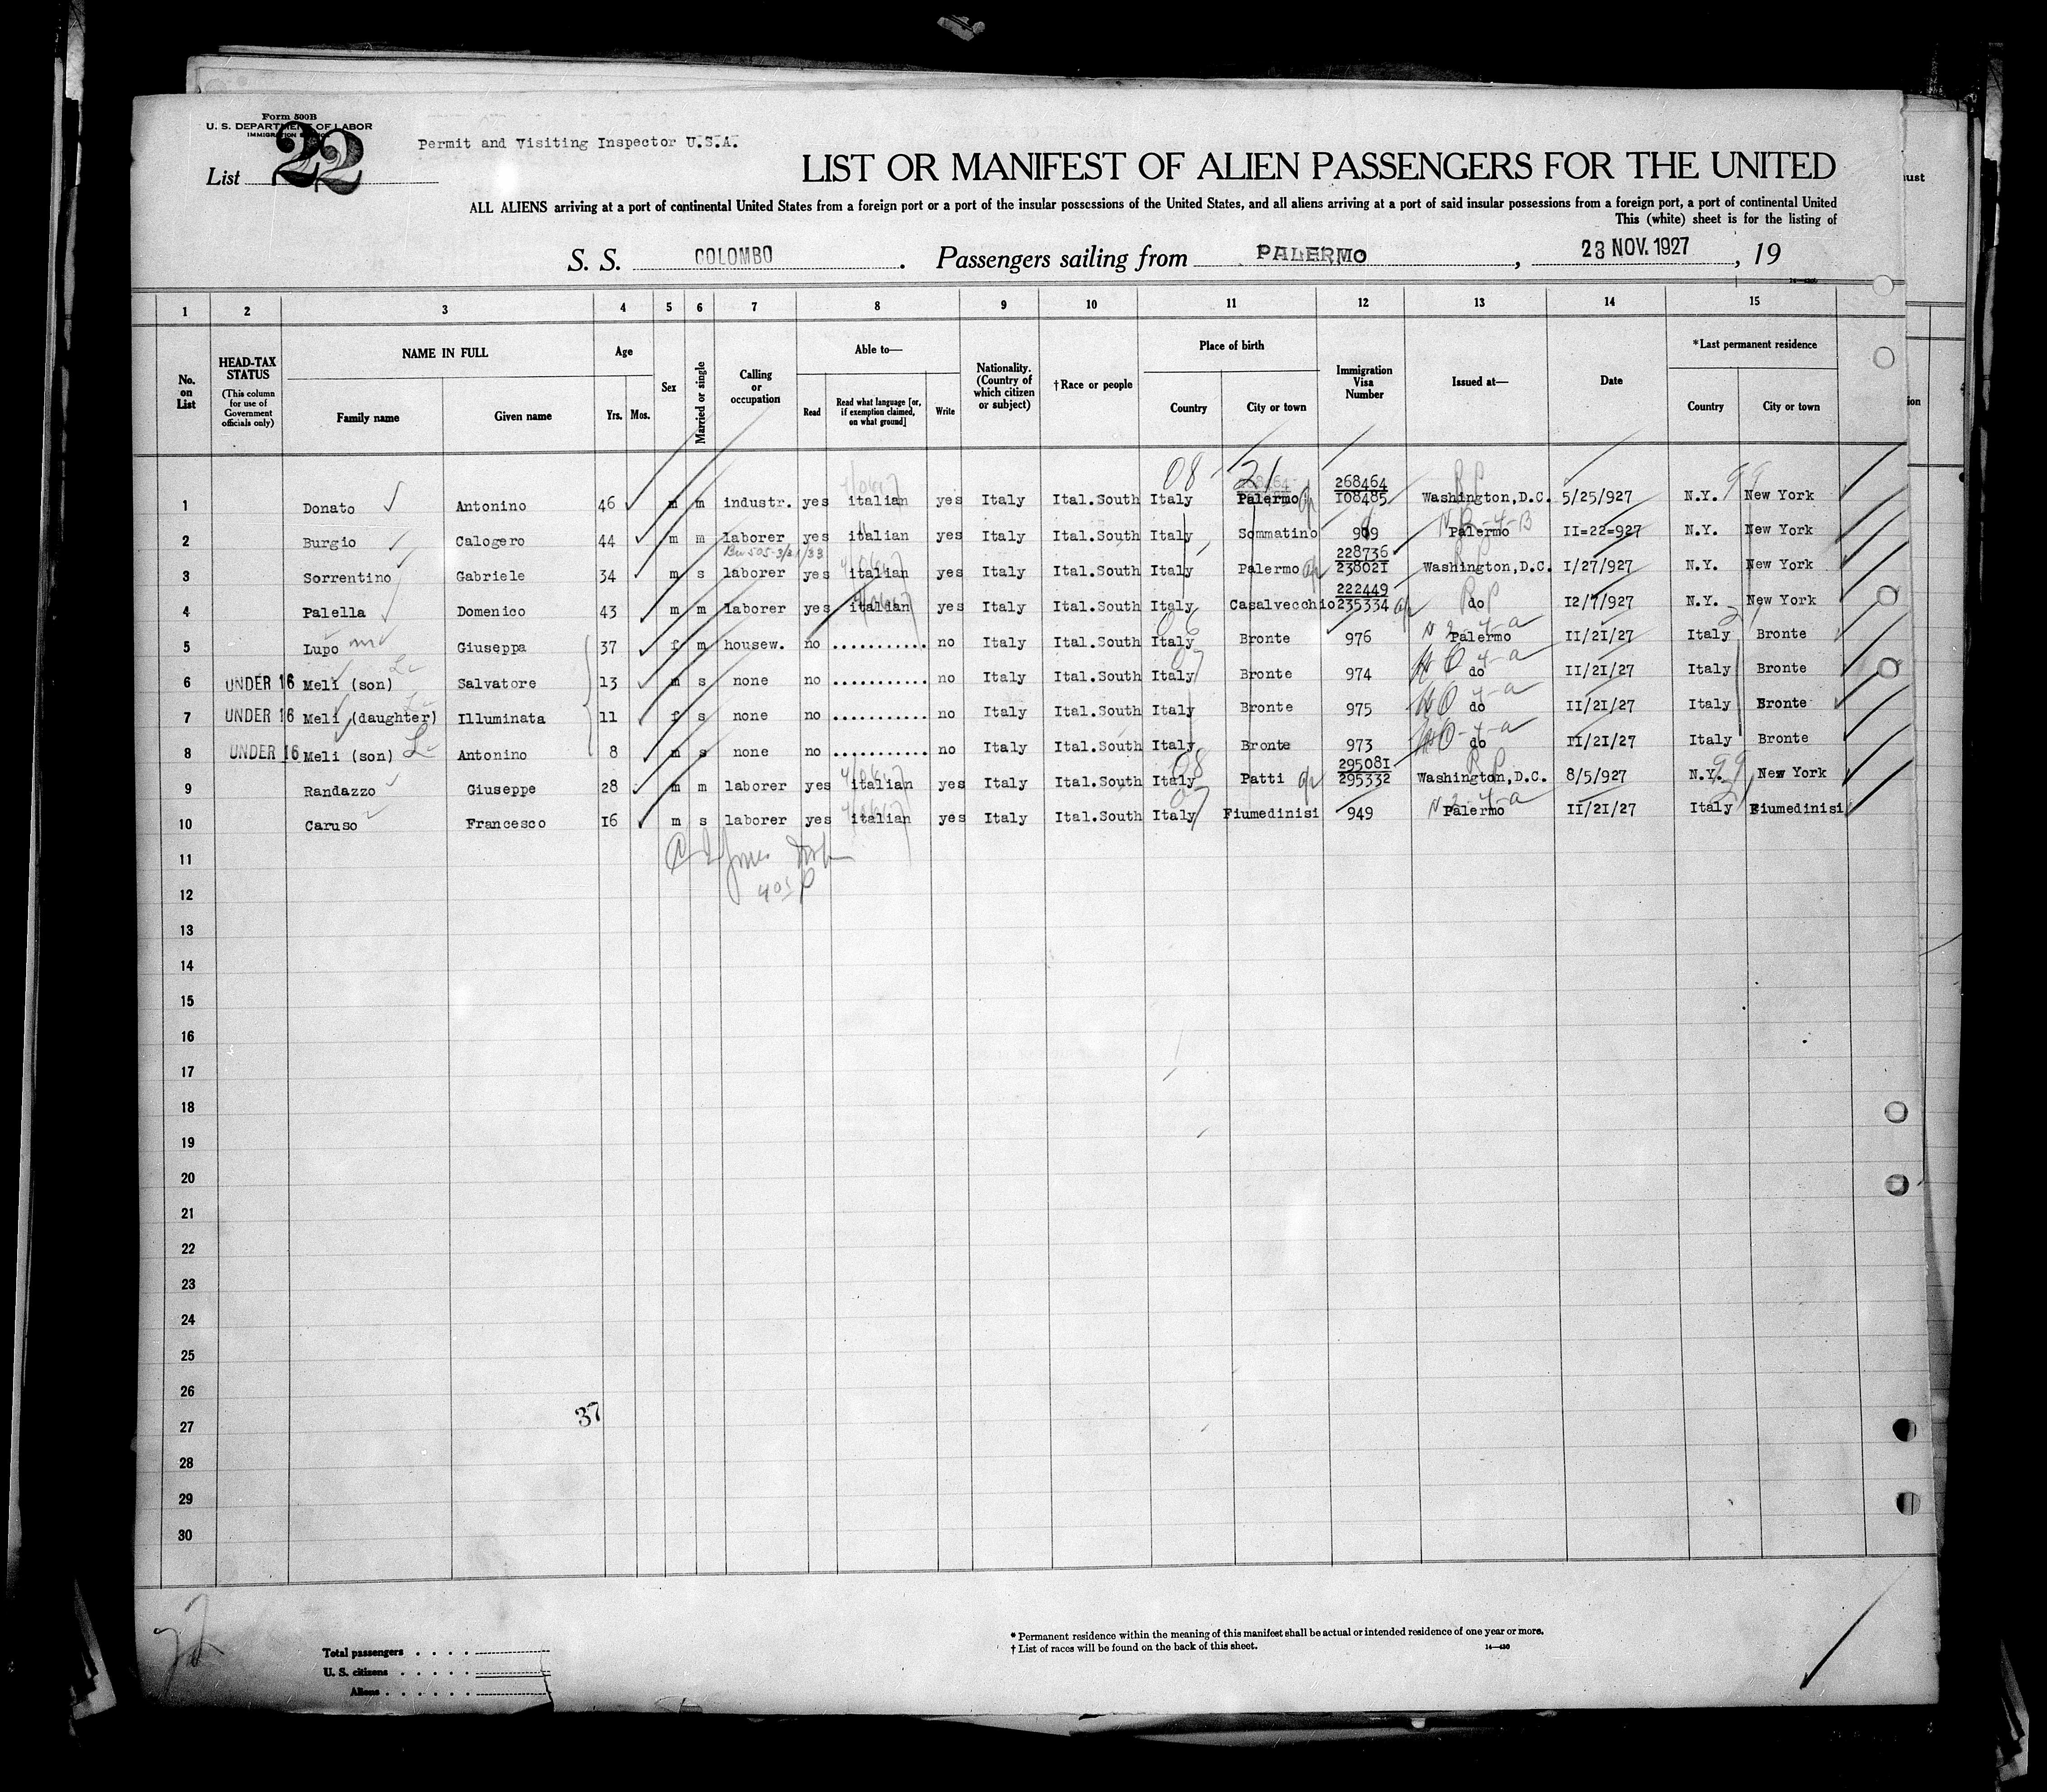 Form 500B
U. S. DEPARTMENT OF LABOR
IMMIGRATION SERVICE
List 22
Permit and Visiting Inspector U.S.A.
LIST OR MANIFEST OF ALIEN PASSENGERS FOR THE UNITED
ALL ALIENS arriving at a port of continental United States from a foreign port or a port of the insular possessions of the United States, and all aliens arriving at a port of said insular possessions from a foreign port, a port of continental United
This (white) sheet is for the listing of
S. S. COLOMBO. Passengers sailing from PALERMO, 23 NOV. 1927, 19
1 2 3 4 5 6 7 8 9 10 11 12 13 14 15
No. on List
HEAD-TAX STATUS
(This column for use of Government officials only)
NAME IN FULL
Family name
Given name
Age
Yrs. Mos.
Sex
Married or single
Calling or occupation
Able to—
Read
Read what language [or, if exemption claimed, on what ground]
Write
Nationality. (Country of which citizen or subject)
†Race or people
Place of birth
Country
City or town
Immigration Visa Number
Issued at—
Date
*Last permanent residence
Country
City or town
08 21
268464
1 Donato Antonino 46 m m industr. yes italian yes Italy Ital.South Italy Palermo 108485 Washington,D.C. 5/25/927 N.Y. New York
2 Burgio Calogero 44 m m laborer yes italian yes Italy Ital.South Italy Sommatino 909 Palermo II=22=927 N.Y. New York
228736
3 Sorrentino Gabriele 34 m s laborer yes italian yes Italy Ital.South Italy Palermo 238021 Washington,D.C. I/27/927 N.Y. New York
222449
4 Palella Domenico 43 m m laborer yes italian yes Italy Ital.South Italy Casalvecchio 235334 do I2/7/927 N.Y. New York
5 Lupo Giuseppa 37 f m housew. no ........... no Italy Ital.South Italy Bronte 976 Palermo II/2I/27 Italy Bronte
6 UNDER 16 Meli (son) Salvatore 13 m s none no ........... no Italy Ital.South Italy Bronte 974 do II/2I/27 Italy Bronte
7 UNDER 16 Meli (daughter) Illuminata 11 f s none no ........... no Italy Ital.South Italy Bronte 975 do II/2I/27 Italy Bronte
8 UNDER 16 Meli (son) Antonino 8 m s none no ........... no Italy Ital.South Italy Bronte 973 do II/2I/27 Italy Bronte
295081
9 Randazzo Giuseppe 28 m m laborer yes italian yes Italy Ital.South Italy Patti 295332 Washington,D.C. 8/5/927 N.Y. New York
10 Caruso Francesco 16 m s laborer yes italian yes Italy Ital.South Italy Fiumedinisi 949 Palermo II/2I/27 Italy Fiumedinisi
11
12
13
14
15
16
17
18
19
20
21
22
23
24
25
26
37
27
28
29
30
Total passengers
U. S. citizens
Aliens
* Permanent residence within the meaning of this manifest shall be actual or intended residence of one year or more.
† List of races will be found on the back of this sheet.